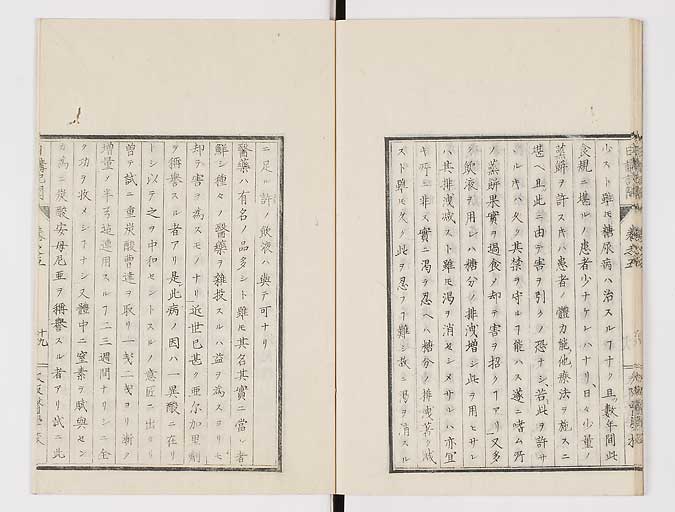 少スト雖モ糖尿病ハ治スルヿナク且數年間此
食規ニ堪ルノ患者少ナケレハナリ、日々少量ノ
蒸餅ヲ許スキハ患者ノ體力能他療法ヲ施スニ
堪ヘ且此ニ由テ害ヲ引クノ恐ナシ、若此ヲ許サ
ルキハ久ク其禁ヲ守ルヿ能ハス遂ニ嗜ム所
ノ蒸餅果實ヲ過食ノ却テ害ヲ招クヿアリ又多
ク飲液ヲ用レハ糖分ノ排洩増シ此ヲ用ヒサレ
ハ其排洩减スト雖モ渴ヲ消セシメサレハ亦宜
キ所ニ非ス實ニ渴ヲ忍ヘハ糖分ノ排洩茗ク减
スト雖モ久ク此ヲ忍フヿ難シ故ニ渴ヲ消スル
ニ足ル許ノ飲液ハ與テ可ナリ
醫藥ハ有名ノ品多シト雖モ其名其實ニ當ル者
鮮シ種々ノ醫藥ヲ雜投スルハ益ヲ為スヨリモ
却テ害ヲ為スモノナリ近世已甚ク亜尓加里劑
ヲ稱誉スル者アリ是此病ノ因ハ一異酸ニ在リ
トシ以テ之ヲ中和セントスルノ意匠ニ出タリ
曾テ試ニ重炭酸曹達ヲ取リ一戔二戔ヨリ漸ク
增量ノ半弓迠連用スルヿ二三週間ナリシニ全
ク功ヲ收メシヿナシ又體中ニ窒素ヲ賦與セン
カ為ニ炭酸安母尼亜ヲ稱誉スル者アリ試ニ此
日講記聞
卷之五
十九
大坂醫學校